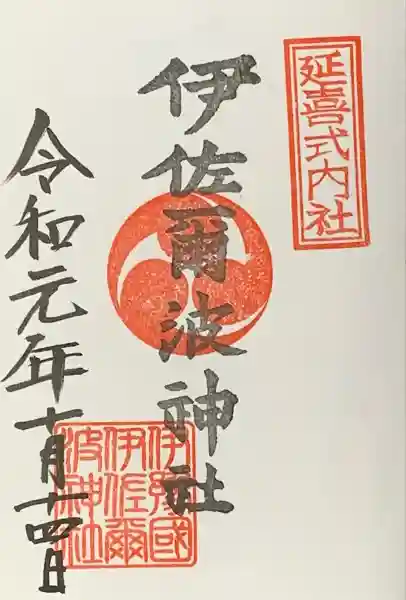 延喜式内社
伊佐爾波神社
令和元年十月十四日
伊豫國
伊佐爾
波神社